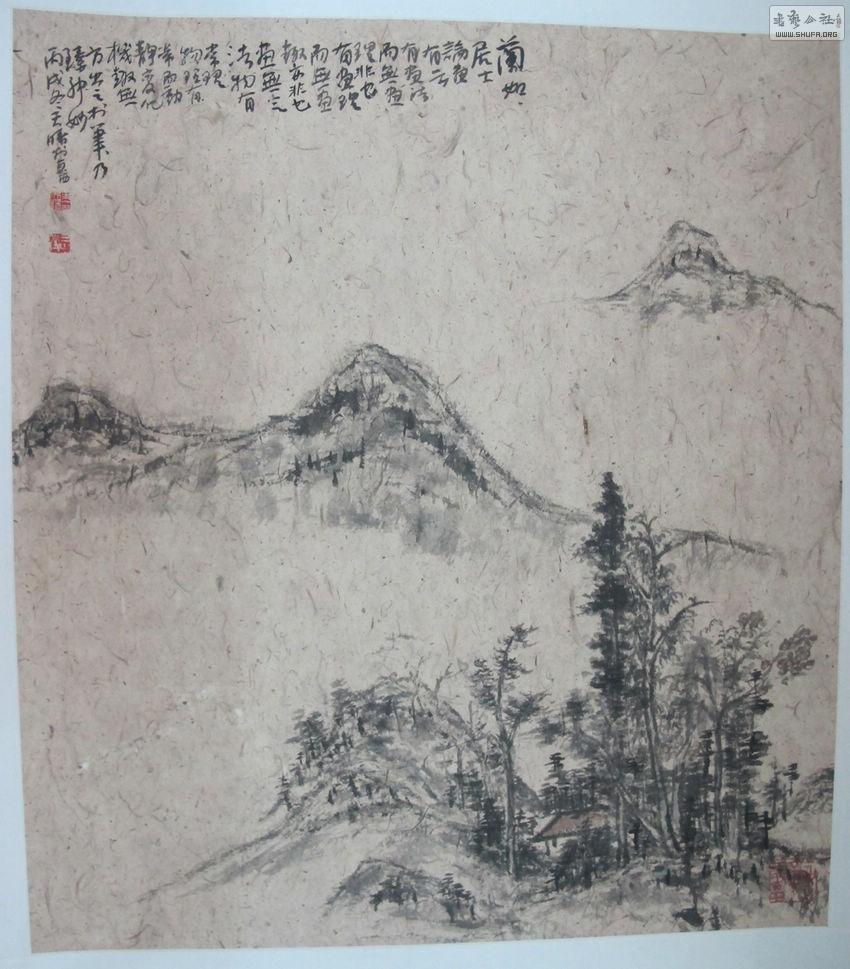 書藝公社
WWW.SHUFA.ORG
蘭如
居士
論畫
有云
有畫法
而無畫
理非也
有畫理
而無畫
趣亦非也
畫無定
法物有
常理
物理有
常而動
靜變化
機趣無
方出之於筆乃
臻神妙
丙戌冬天